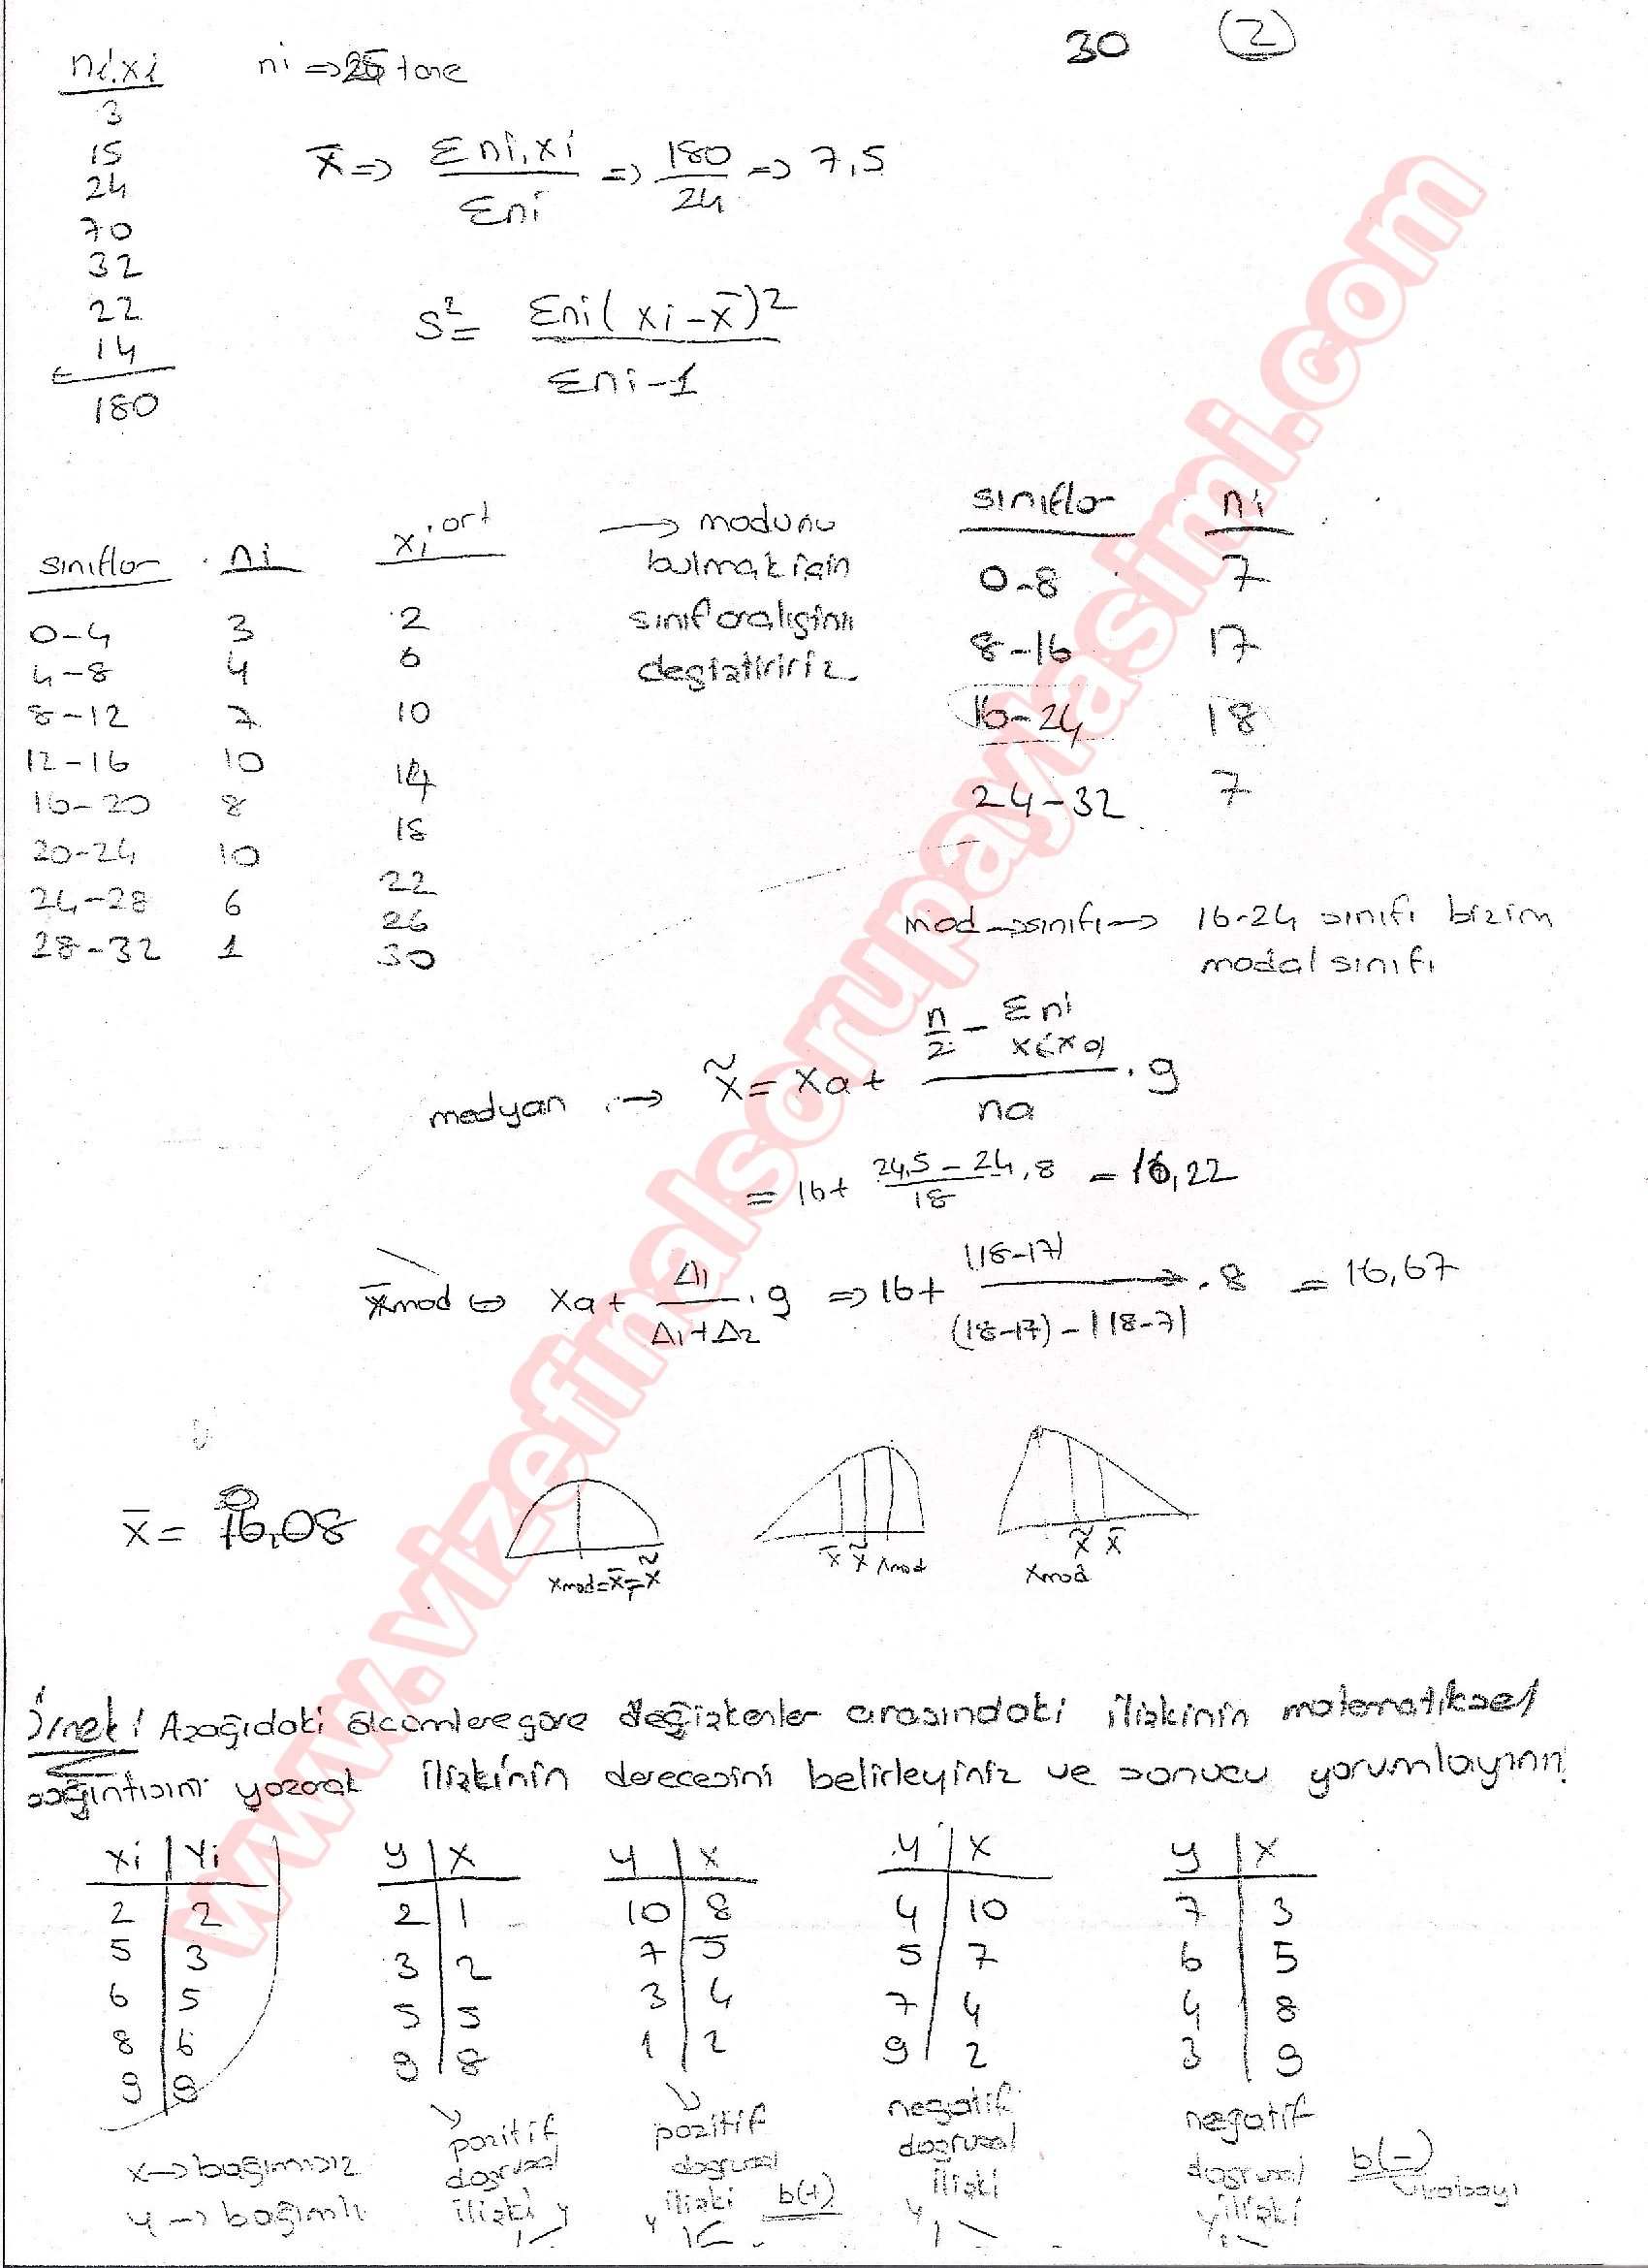 30 (2)
ni.xi ni => 24 tane
3
15
24
70
32
22
14
180
x̄ => Σni.xi / Σni => 180/24 => 7,5
S² = Σni(xi-x̄)² / Σni-1
sınıflar ni xi,ort
0-4 3 2
4-8 4 6
8-12 7 10
12-16 10 14
16-20 8 18
20-24 10 22
24-28 6 26
28-32 1 30
→ modunu
bulmak için
sınıf aralığını
değiştiririz.
sınıflar ni
0-8 7
8-16 17
16-24 18
24-32 7
mod → sınıfı → 16-24 sınıfı bizim
modal sınıfı
medyan → x̃ = xa + (n/2 - Σni x<xa) / na . g
= 16 + (24,5 - 24) / 18 . 8 = 16,22
x̄mod => xa + Δ1 / (Δ1+Δ2) . g => 16 + (18-17) / (18-17)-|18-7| . 8 = 16,67
x̄ = 16,08
xmod = x̄ = x̃
x̄ x̃ xmod
xmod x̃ x̄
Örnek! Aşağıdaki ölçümlere göre değişkenler arasındaki ilişkinin matematiksel
bağıntısını yazarak ilişkinin derecesini belirleyiniz ve sonucu yorumlayınız!
xi | yi
2 | 2
5 | 3
6 | 5
8 | 6
9 | 9
x → bağımsız
y → bağımlı
y | x
2 | 1
3 | 2
5 | 5
9 | 8
pozitif
doğrusal
ilişki y
y | x
10 | 8
7 | 5
3 | 4
1 | 2
pozitif
doğrusal
ilişki b(+)
y
y | x
4 | 10
5 | 7
7 | 4
9 | 2
negatif
doğrusal
ilişki
y
y | x
7 | 3
6 | 5
4 | 8
3 | 9
negatif
doğrusal b(-)
ilişki katsayı
y
www.vizefinalsorupaylasimi.com